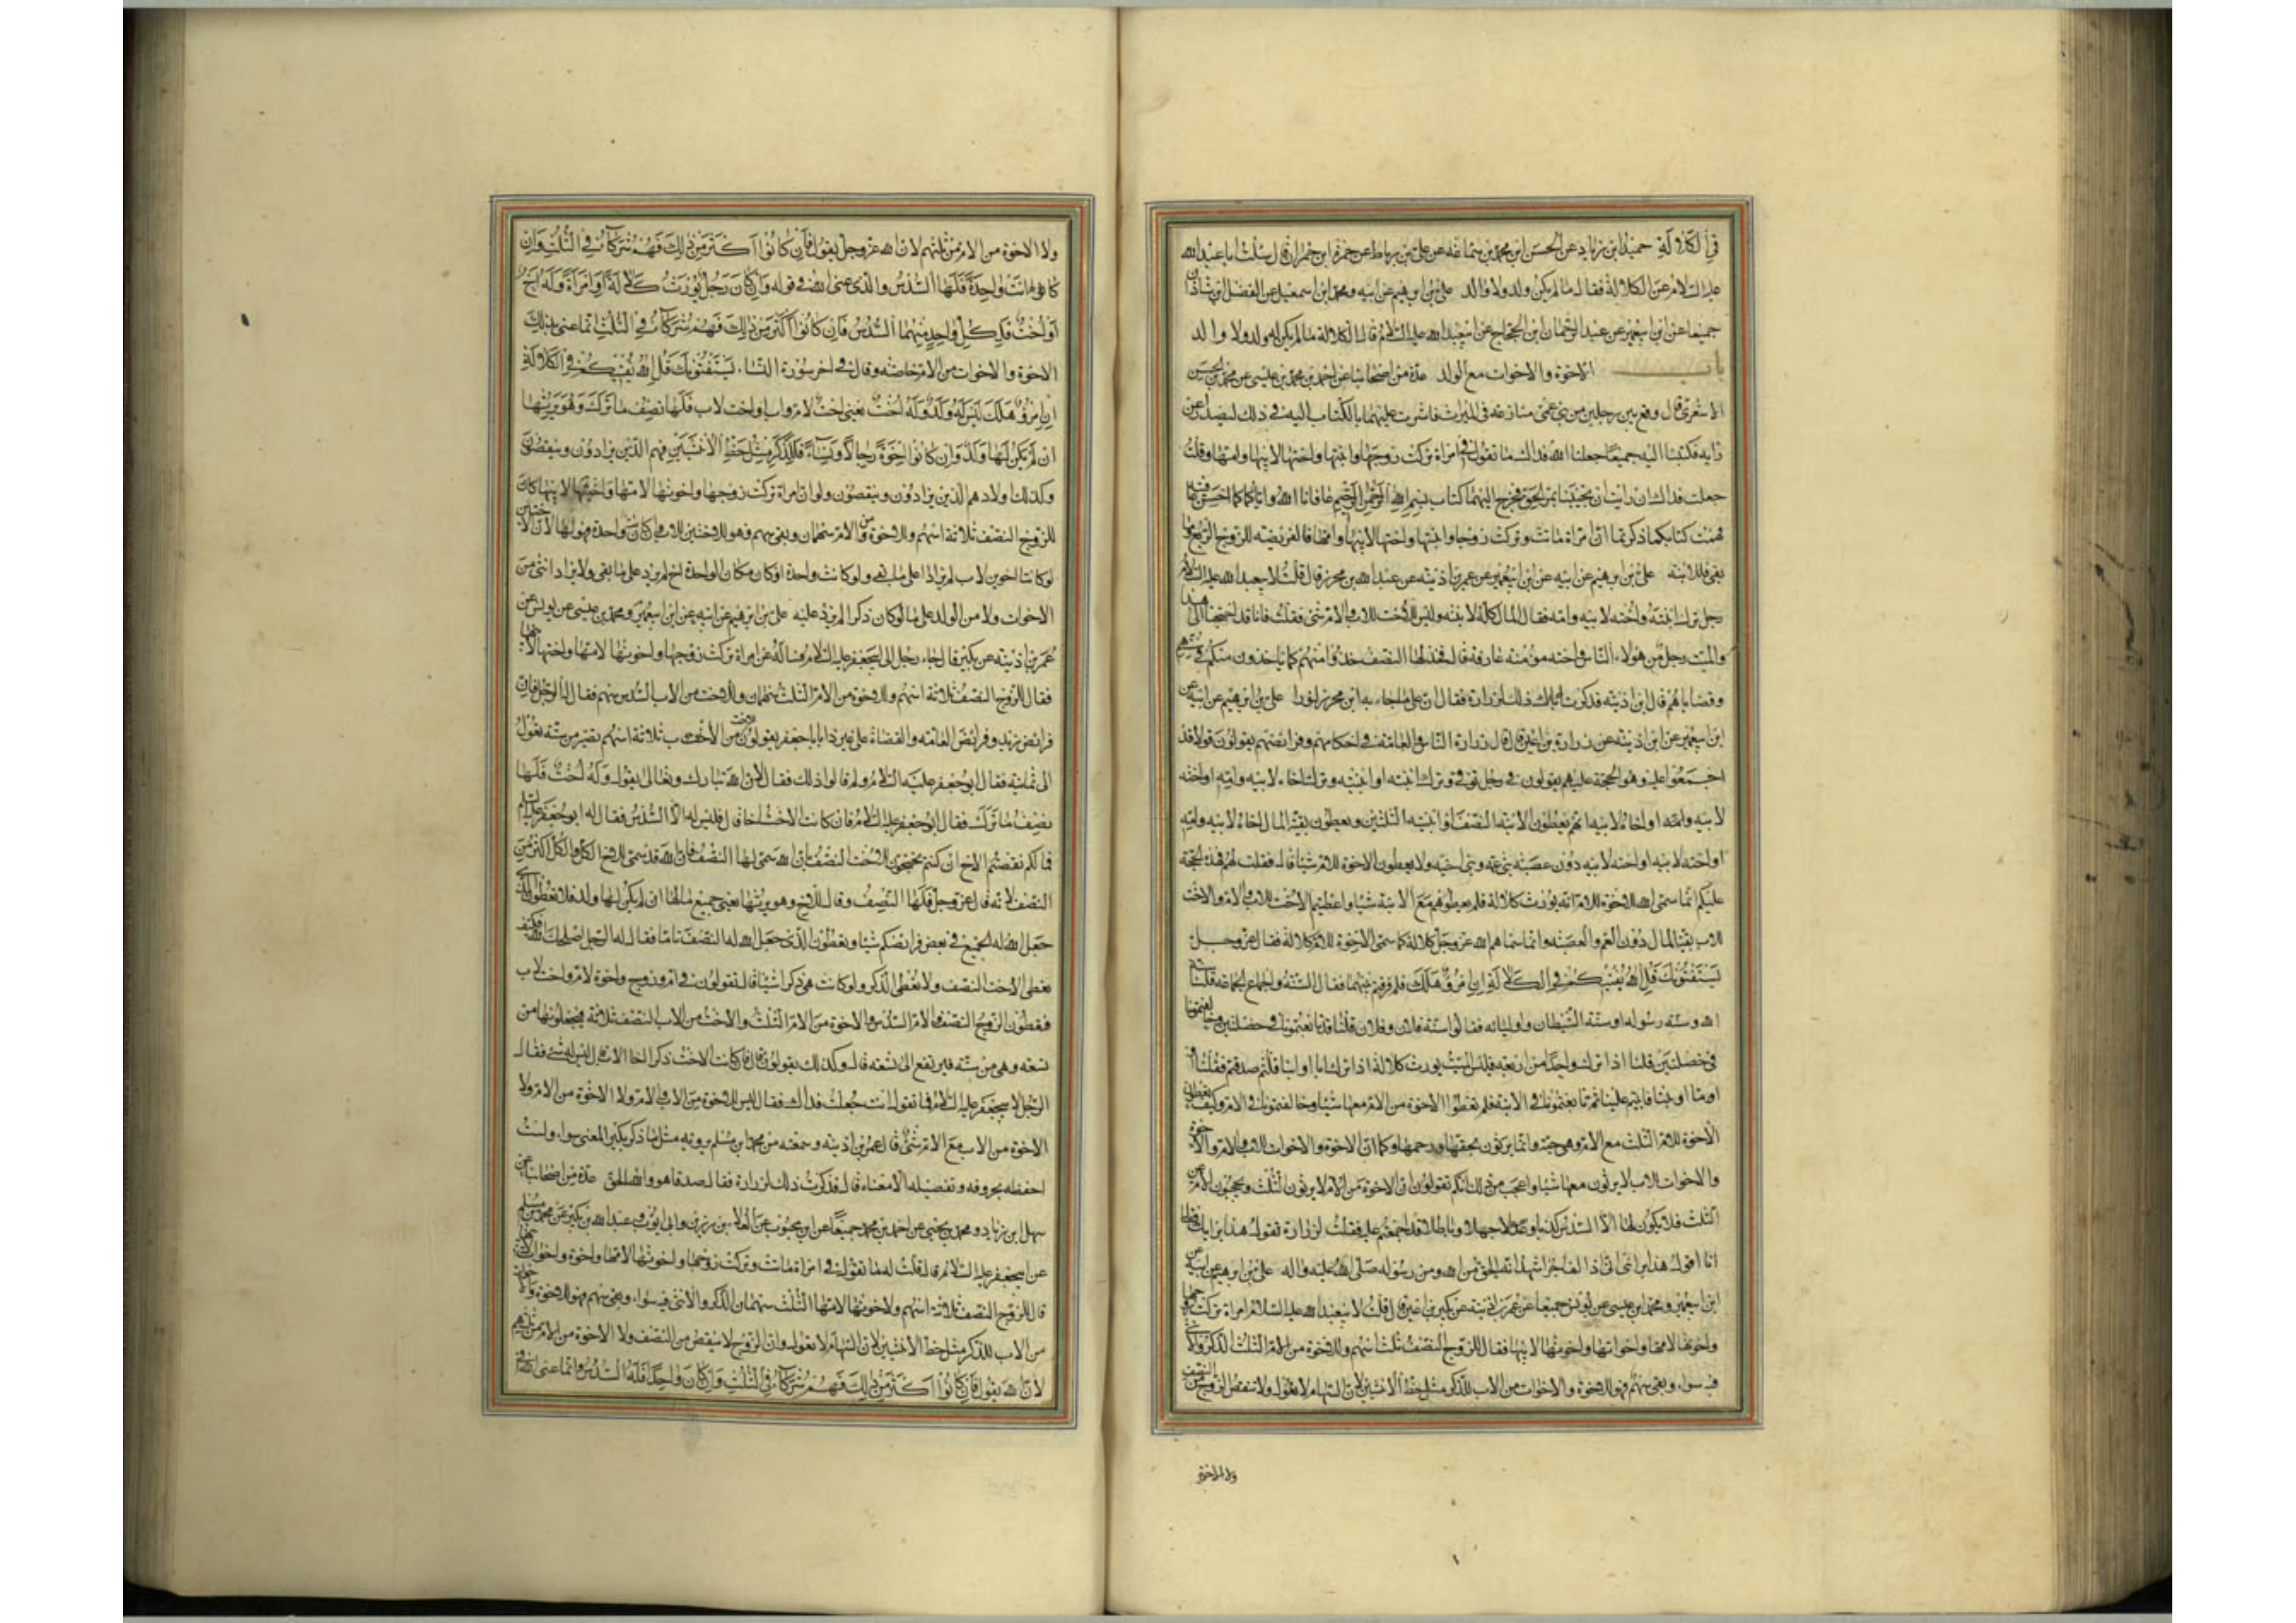 في الكلالة حميد ابن زياد عن الحسن ابن محمد بن سماعة عن علي بن رباط عن حمزة ابن حمران قال سئلت ابا عبد الله
عليه السلام عن الكلالة فقال ما لم يكن ولد ولا والد علي بن ابرهيم عن ابيه ومحمد ابن اسمعيل عن الفضل ابن شاذان
جميعا عن ابن ابي عمير عن عبد الرحمان ابن الحجاج عن ابي عبد الله عليه السلام قال الكلالة ما لم يكن له ولد ولا والد
باب الاخوة والاخوات مع الولد عدة من اصحابنا عن احمد بن محمد بن عيسى عن محمد بن الحسن
الاشعري قال وقع بين رجلين من بني عمي منازعة في الميراث فاشرت عليهما بالكتاب اليه في ذلك ليصدرا عن
رايه فكتبنا اليه جميعا جعلنا الله فداك ما تقول في امراة تركت زوجها وابنتها واختها لابيها وامها وقلت
جعلت فداك ان رايت ان تجيبنا بمر الحق فخرج اليهما كتاب بسم الله الرحمن الرحيم عافانا الله واياكما احسن عافية
فهمت كتابكما ذكرتما ان امراة ماتت وتركت زوجها وابنتها واختها لابيها وامها فالفريضة للزوج الربع وما
بقي فللابنة علي بن ابرهيم عن ابيه عن ابن ابي عمير عن عمر بن اذينة عن عبد الله بن محرز قال قلت لابي عبد الله عليه السلام
رجل ترك ابنته واخته لابيه وامه فقال المال كله لابنته وليس للاخت للاب والام شئ فقلت فانا قد احتجنا الى هذا
والميت رجل من هؤلاء الناس واخته مؤمنة عارفة قال فخذ لها النصف خذوا منهم كما ياخذون منكم في سنتهم
وقضاياهم قال ابن اذينة فذكرت ذلك لزرارة فقال ان على ما جاء به ابن محرز لنورا علي بن ابرهيم عن ابيه عن
ابن ابي عمير عن ابن اذينة عن زرارة بن اعين قال قال زرارة الناس والعامة في احكامهم وفرائضهم يقولون قولا قد
اجمعوا عليه وهو الحجة عليهم يقولون في رجل توفى وترك ابنته او ابنتيه وترك اخاه لابيه وامه او اخته
لابيه وامه او اخاه لابيه انهم يعطون الابنة النصف او ابنتيه الثلثين ويعطون بقية المال اخاه لابيه وامه
او اخته لابيه او اخته لابيه دون عصبة بني عمه وبني اخيه ولا يعطون الاخوة للام شيئا قال فقلت لهم فهذه الحجة
عليكم انما سمى الله للاخوة للام انه يورث كلالة فلم تعطوهم مع الابنة شيئا واعطيتم الاخت للاب والام والاخت
للاب بقية المال دون العم والعصبة وانما سماهم الله عز وجل كلالة كما سمى الاخوة للام كلالة فقال عز وجل
يستفتونك قل الله يفتيكم في الكلالة ان امرؤ هلك فلم فرقتم بينهما فقال السنة واجماع الجماعة قلنا سنة
الله وسنة رسوله او سنة الشيطان واوليائه فقالوا سنة فلان وفلان قلنا قد تابعتمونا في خصلتين وخالفتمونا
في خصلتين قلنا اذا ترك واحدا من اربعة فليس الميت يورث كلالة اذا ترك ابا او ابنا قلتم صدقتم فقلنا او
اما او ابنة فابيتم علينا ثم تابعتمونا في الابنة فلم تعطوا الاخوة من الام معها شيئا وخالفتمونا في الام وكيف تعطون
الاخوة للام الثلث مع الام وهي حية وانما يرثون بحقها ورحمها وكما ان الاخوة والاخوات للاب والام والاخوة
والاخوات للاب لا يرثون معها شيئا واعجب من ذلك انكم تقولون ان الاخوة من الام لا يرثون الثلث ويحجبون الام عن
الثلث فلا يكون لها الا السدس كذبا وجهلا وباطلا قد اجمعتم عليه فقلت لزرارة تقول هذا برايك فقال
انا اقول هذا برائي اني اذا لفاجر اشهد انه الحق من الله ومن رسوله صلى الله عليه واله علي بن ابرهيم عن ابيه عن
ابن ابي عمير ومحمد ابن عيسى عن يونس جميعا عن عمر بن اذينة عن بكير بن اعين قال قلت لابي عبد الله عليه السلام امراة تركت زوجها
واخوتها لامها واخواتها واخوتها لابيها فقال للزوج النصف ثلث اسهم وللاخوة من الام الثلث الذكر والانثى
فيه سواء وبقي سهم فهو للاخوة والاخوات من الاب للذكر مثل حظ الانثيين لان السهام لا تعول ولا ينقص الزوج من النصف
ولا الاخوة
ولا الاخوة من الام من ثلثهم لان الله عز وجل يقول فان كانوا اكثر من ذلك فهم شركاء في الثلث وان
كانت واحدة فلها السدس والذي عنى الله في قوله وان كان رجل يورث كلالة او امراة وله اخ
او اخت فلكل واحد منهما السدس فان كانوا اكثر من ذلك فهم شركاء في الثلث انما عنى بذلك
الاخوة والاخوات من الام خاصة وقال في اخر سورة النساء يستفتونك قل الله يفتيكم في الكلالة
ان امرؤ هلك ليس له ولد وله اخت يعني اخت لام واب او اخت لاب فلها نصف ما ترك وهو يرثها
ان لم يكن لها ولد وان كانوا اخوة رجالا ونساء فللذكر مثل حظ الانثيين فهم الذين يزادون وينقصون
وكذلك اولادهم الذين يزادون وينقصون ولو ان امراة تركت زوجها واخوتها لامها واختيها لابيها كان
للزوج النصف ثلاثة اسهم وللاخوة من الام سهمان وبقي سهم فهو للاختين للاب وان كانت واحدة فهو لها لان الاختين
لو كانتا اخوين لاب لم يزادا على ما بقي ولو كانت واحدة او كان مكان الواحدة اخ لم يزد على ما بقي ولا يزاد انثى من
الاخوات ولا من الولد على ما لو كان ذكرا لم يزد عليه علي بن ابرهيم عن ابيه عن ابن ابي عمير ومحمد بن عيسى عن يونس عن
عمر بن اذينة عن بكير قال جاء رجل الى ابي جعفر عليه السلام فسأله عن امراة تركت زوجها واخوتها لامها واختها لابيها
فقال للزوج النصف ثلاثة اسهم وللاخوة من الام الثلث سهمان وللاخت من الاب السدس سهم فقال له الرجل فان
فرائض زيد وفرائض العامة والقضاة على غير ذا يابا جعفر يقولون للاخت من الاب ثلاثة اسهم تصير من ستة تعول
الى ثمانية فقال ابو جعفر عليه السلام ولم قالوا ذلك فقال لان الله تبارك وتعالى يقول وله اخت فلها
نصف ما ترك فقال ابو جعفر عليه السلام فان كانت الاخت اخا قال فليس له الا السدس فقال له ابو جعفر عليه السلام
فما لكم نقصتم الاخ ان كنتم تحتجون للاخت النصف بان الله سمى لها النصف فان الله قد سمى للاخ الكل والكل اكثر من
النصف لانه قال عز وجل فلها النصف وقال للاخ وهو يرثها يعني جميع مالها ان لم يكن لها ولد فلا تعطون الذي
جعل الله له الجميع في بعض فرائضكم شيئا وتعطون الذي جعل الله له النصف تاما فقال له الرجل اصلحك الله فكيف
نعطي الاخت النصف ولا نعطي الذكر ولو كانت هي ذكرا شيئا قال تقولون في ام وزوج واخوة لام واخت لاب
فتعطون الزوج النصف والام السدس والاخوة من الام الثلث والاخت من الاب النصف ثلاثة فتجعلونها من
تسعة وهي من ستة فترتفع الى تسعة قال وكذلك يقولون قال فان كانت الاخت ذكرا اخا لاب قال ليس له شئ فقال
الرجل لابي جعفر عليه السلام فما تقول انت جعلت فداك فقال ليس للاخوة من الاب والام ولا الاخوة من الام ولا
الاخوة من الاب مع الام شئ قال عمر بن اذينة وسمعته من محمد ابن مسلم يرويه مثل ما ذكر بكير المعنى سواء ولست
احفظه بحروفه وتفصيله الا معناه قال فذكرت ذلك لزرارة فقال صدقا هو والله الحق عدة من اصحابنا عن
سهل ابن زياد ومحمد بن يحيى عن احمد بن محمد جميعا عن ابن محبوب عن العلاء بن رزين وابي ايوب وعبد الله بن بكير عن محمد بن مسلم
عن ابي جعفر عليه السلام قال قلت له ما تقول في امراة ماتت وتركت زوجها واخوتها لامها واخوة واخوات لابيها
قال للزوج النصف ثلاثة اسهم ولاخوتها لامها الثلث سهمان الذكر والانثى فيه سواء وبقي سهم فهو للاخوة والاخوات
من الاب للذكر مثل حظ الانثيين لان السهام لا تعول وان الزوج لا ينقص من النصف ولا الاخوة من الام من ثلثهم
لان الله يقول فان كانوا اكثر من ذلك فهم شركاء في الثلث وان كان واحدا فله السدس وانما عنى الله في